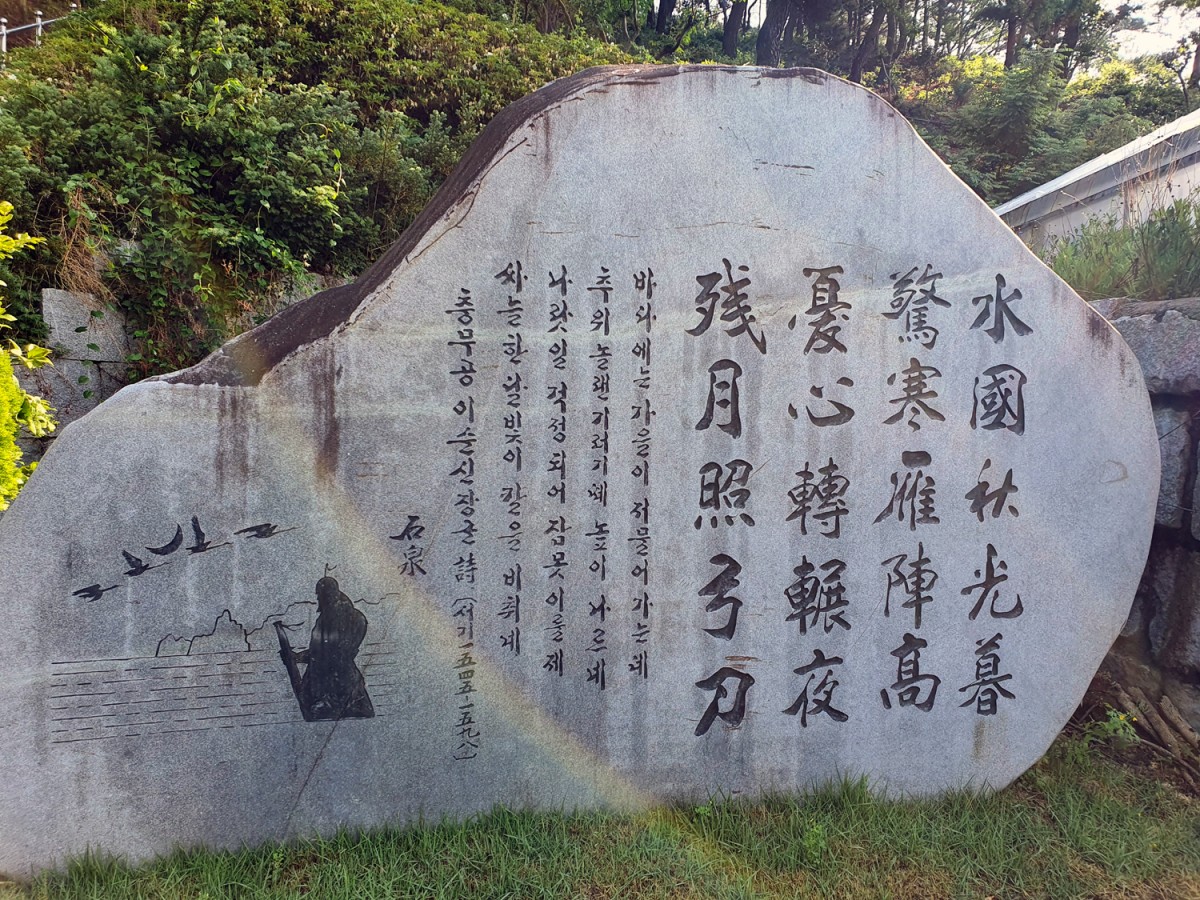 水國秋光暮
驚寒雁陣高
憂心轉輾夜
残月照弓刀
바다에는 가을이 저물어 가는데
추위 놀랜 기러기떼 높이 나르네
나랏일 걱정되어 잠 못 이룰 제
싸늘한 달빛이 칼을 비취네
충무공 이순신 장군 詩 (서기 一五四五 一五九八)
石泉